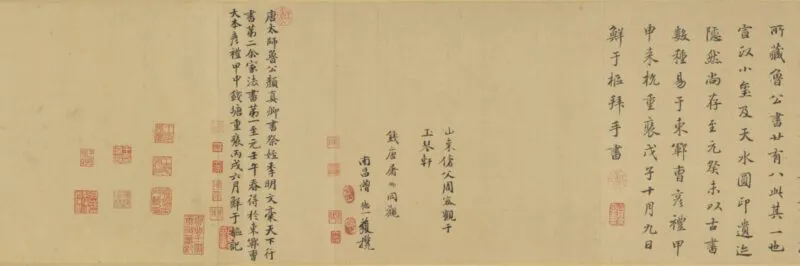 所藏魯公書廿有八此其一也
宣政小璽及天水圓印遺迹
隱然尚存至元癸未以古書
數種易于東鄆曹彥禮甲
申來杭重裝戊子十月九日
鮮于樞拜手書
山東傖父周密觀于
玉琴軒
錢唐屠 同觀
南昌僧 一獲攬
唐太師魯公顏真卿書祭姪季明文藁天下行
書第二余家法書第一至元壬午春得於東鄆曹
大本彥禮甲申錢塘重裝丙戌六月鮮于樞記